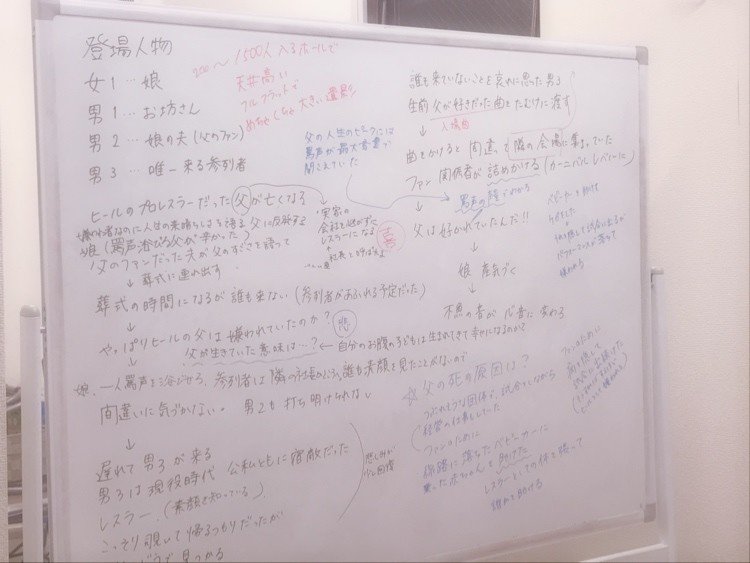 登場人物
女1…娘
男1…お坊さん
男2…娘の夫(父のファン)
男3…唯一来る参列者
~1500人入るホールで
天井高い
フルフラットで
めちゃくちゃ大きい遺影
ヒールのプロレスラーだった父が亡くなる
嫌われ者なのに人生の素晴らしさを語る父に反発する
娘(罵声浴びる父が辛かった)
父のファンだった夫が父のすごさを語って
↓葬式に連れ出す
葬式の時間になるが誰も来ない(参列者があふれる予定だった)
↓
やっぱりヒールの父は嫌われていたのか?
悲
父が生きていた意味は…?←自分のお腹の子どもは生まれてきて幸せになるのか?
娘、一人罵声を浴びせる、参列者は隣の
誰も素顔を見たことがないので
間違いに気づかない。男2も打ち明けられない
↓
遅れて男3が来る
男3は現役時代 公私ともに宿敵だった
レスラー。(素顔を知っている)
こっそり覗いて帰るつもりだったが
見つかる
悲しみが
少し回復
実家の
会社を継がずに
レスラーになる
社長と呼ばれる
喜
父の人生のセミナーには
罵声が最大音量で
聞こえていた
誰も来ていないことを哀れに思った男3
生前 父が好きだった曲をたむけに渡す
↓入場曲
曲をかけると 間違って隣の会場に集まっていた
ファン 関係者が詰めかける(カーニバルレベルに)
↓
罵声の 分かる
父は好かれていたんだ!!
↓
娘 産気づく
↓
木魚の音が心音に変わる
ベビーカーを助けて
ケガをした
隠して試合に出るが
パフォーマンスが落ちて
嫌われる
☆父の死の原因は?
つぶれそうな団体で、試合をしながら
経営の仕事もしていた
ファンのために
線路に落ちたベビーカーに
乗った赤ちゃんを助けた
レスラーとしての体を張って
助ける
ファンのために
隠して
試合に出続けた